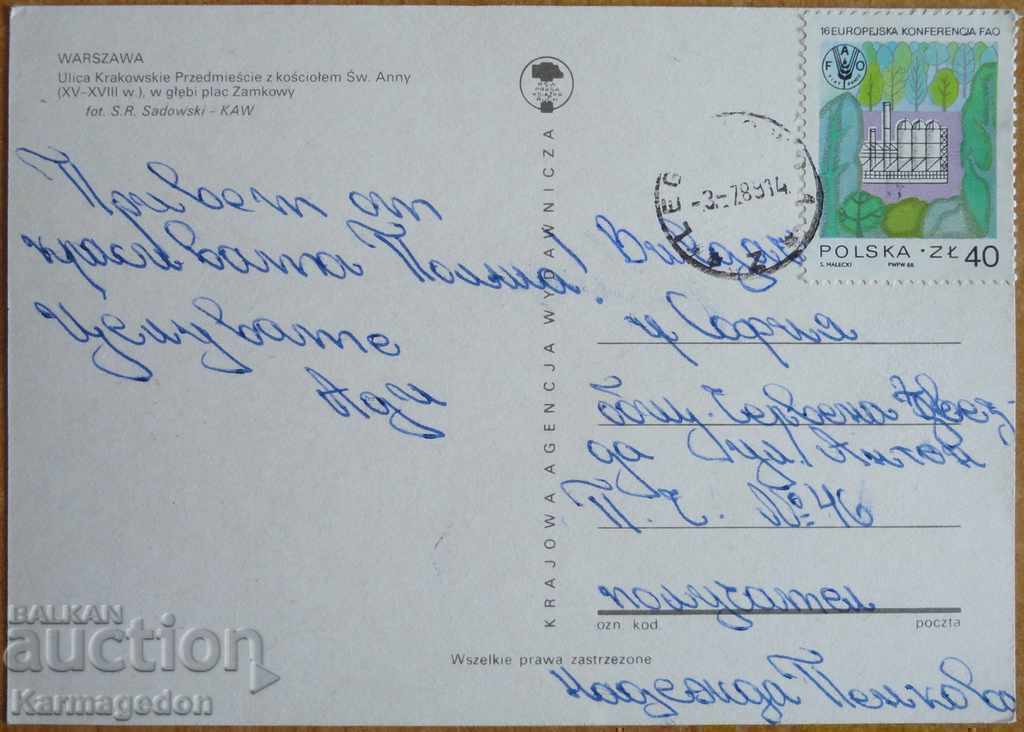 WARSZAWA
Ulica Krakowskie Przedmieście z kościołem Św. Anny
(XV–XVIII w.), w głębi plac Zamkowy
fot. S.R. Sadowski - KAW
Привет от
красивата Полша!
Целувате
Ади
KRAJOWA AGENCJA WYDAWNICZA
16 EUROPEJSKA KONFERENCJA FAO
FAO
FIAT PANIS
POLSKA · ZŁ 40
S. MAŁECKI PWPW 88
-3-789 14
ц София
бул. Червена Звез-
да /ул./ Антон
П. Г. № 46
получател
ozn. kod poczta
Надежда Пенкова
Wszelkie prawa zastrzeżone
BALKAN
auction
Karmagedon